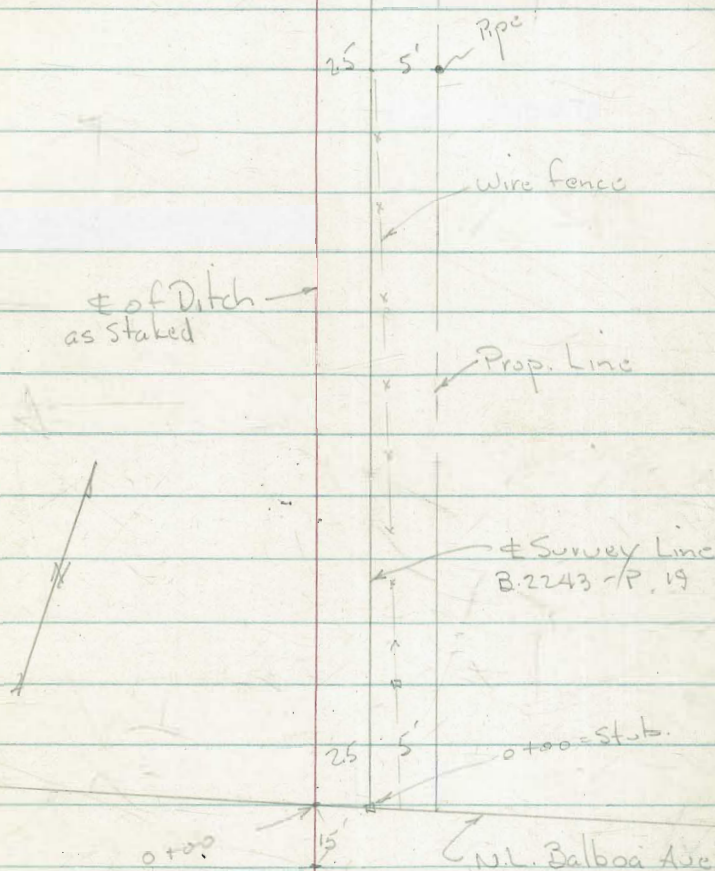 Pipe
25 5'
Wire fence
℄ of Ditch
as Staked
Prop. Line
℄ Survey Line
B.2243 - P. 19
N
25 5'
0+00 = Stub.
0+00
15'
N.L. Balboa Ave